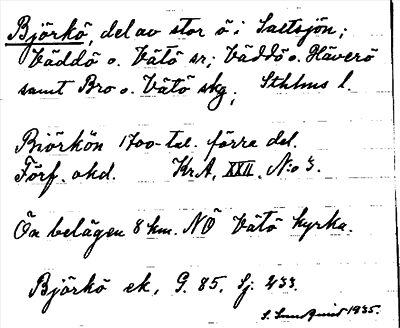 Björkö, del av stor ö i Saltsjön;
Väddö o. Vätö sr; Väddö o. Häverö
samt Bro o. Vätö skg; Sthlms l.
Biörkön 1700-tal. förra del.
Förf. okd. Kr.A, XXII. N:o 3.
Ön belägen 8 km. NÖ Vätö kyrka.
Björkö ek, G. 85, Sj: 433.
S. 1935.